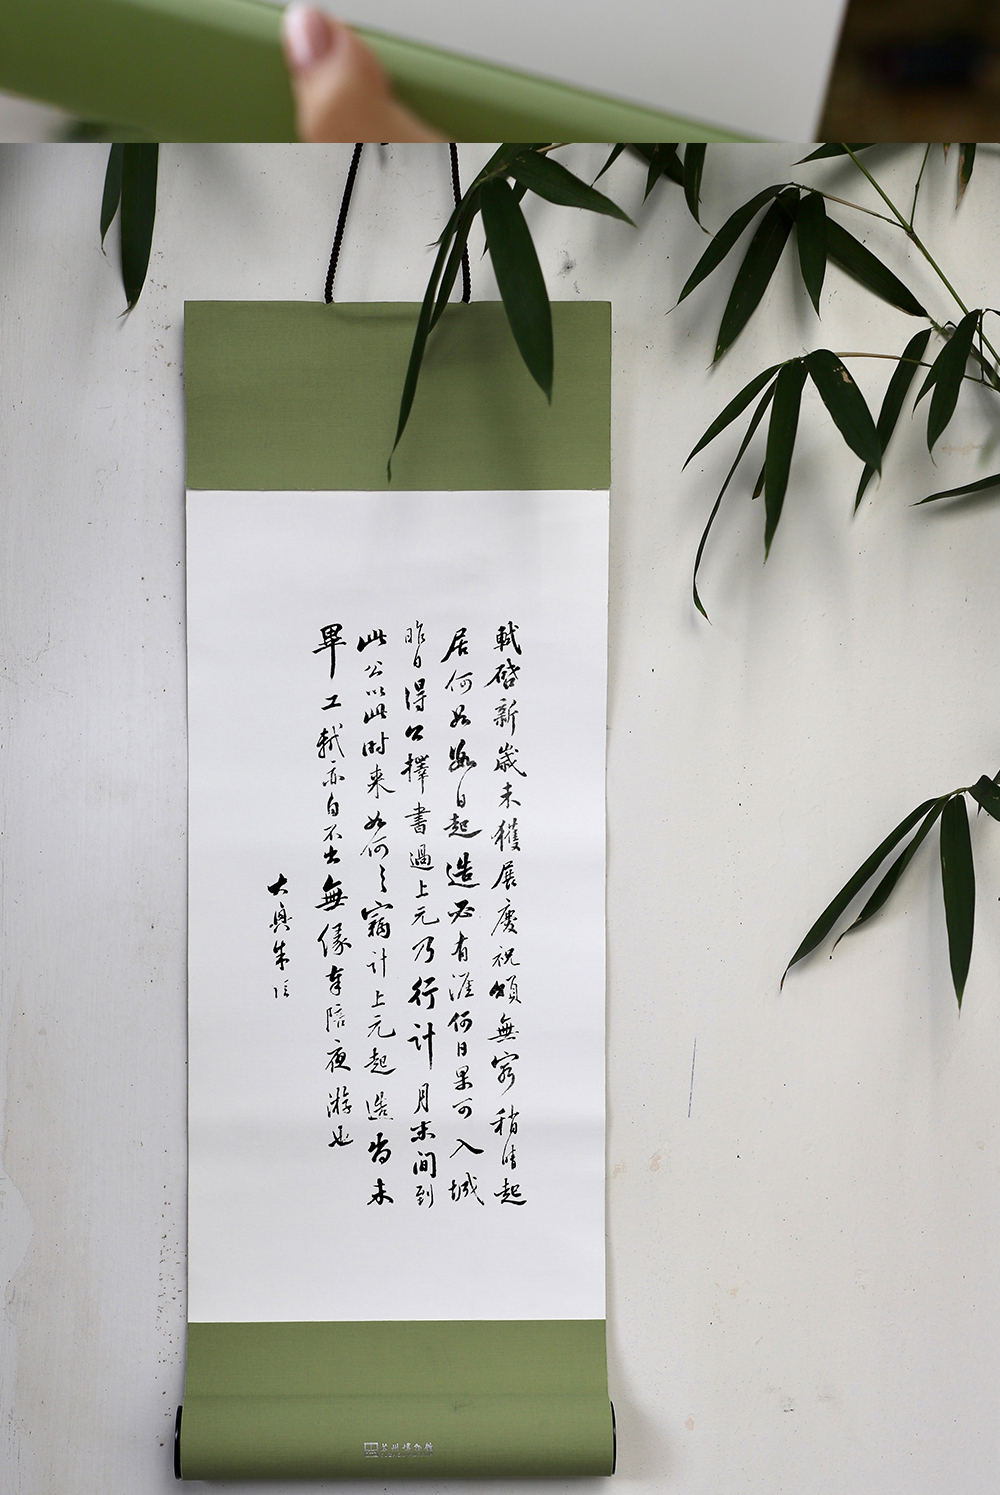 軾啓新歲未獲展慶祝頌無窮稍晴起
居何如數日起造必有涯何日果可入城
昨日得公擇書過上元乃行計月末間到
此公以此時来如何々竊計上元起造尚未
畢工軾亦自不出無緣奉陪夜游也
苏州博物館